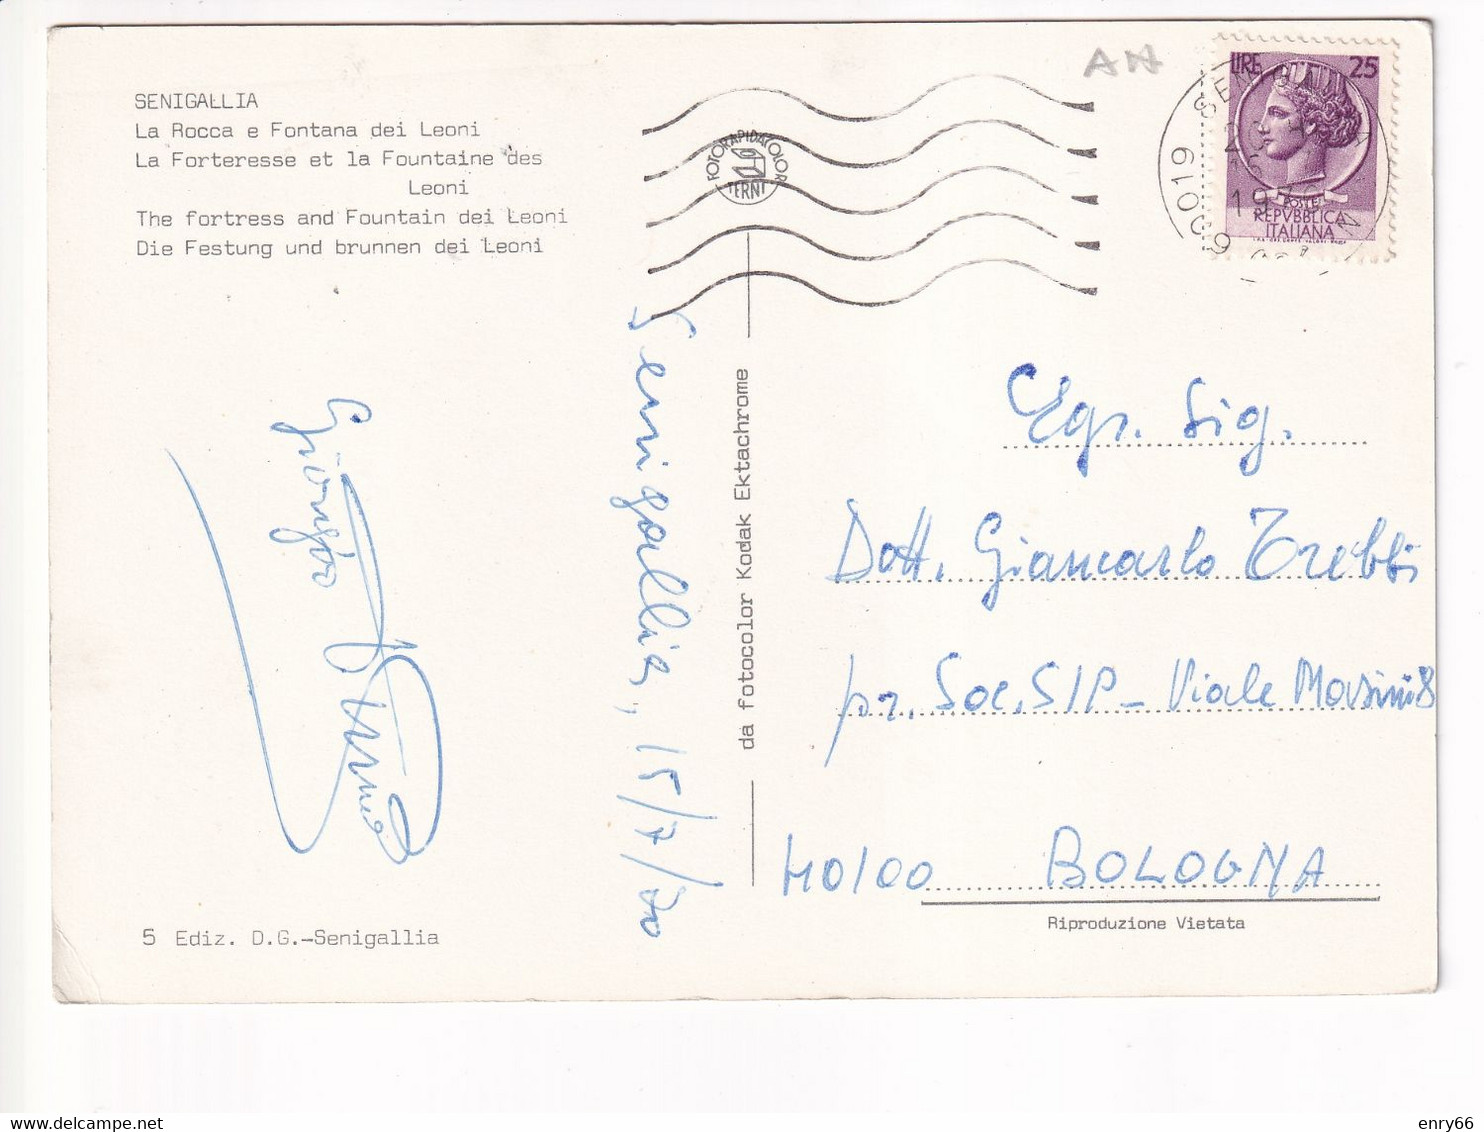 SENIGALLIA
La Rocca e Fontana dei Leoni
La Forteresse et la Fountaine des
Leoni
The fortress and Fountain dei Leoni
Die Festung und brunnen dei Leoni
AN
FOTORAPIDACOLOR
TERNI
LIRE 25
POSTE
REPVBBLICA
ITALIANA
60019 SENIGALLIA
1970
Senigallia, 15/7/70
Giorgio
da fotocolor Kodak Ektachrome
Egr. Sig.
Dott. Giancarlo Trebbi
pr. Soc. SIP - Viale Masini 8
40100 BOLOGNA
Riproduzione Vietata
5 Ediz. D.G.-Senigallia
enry66